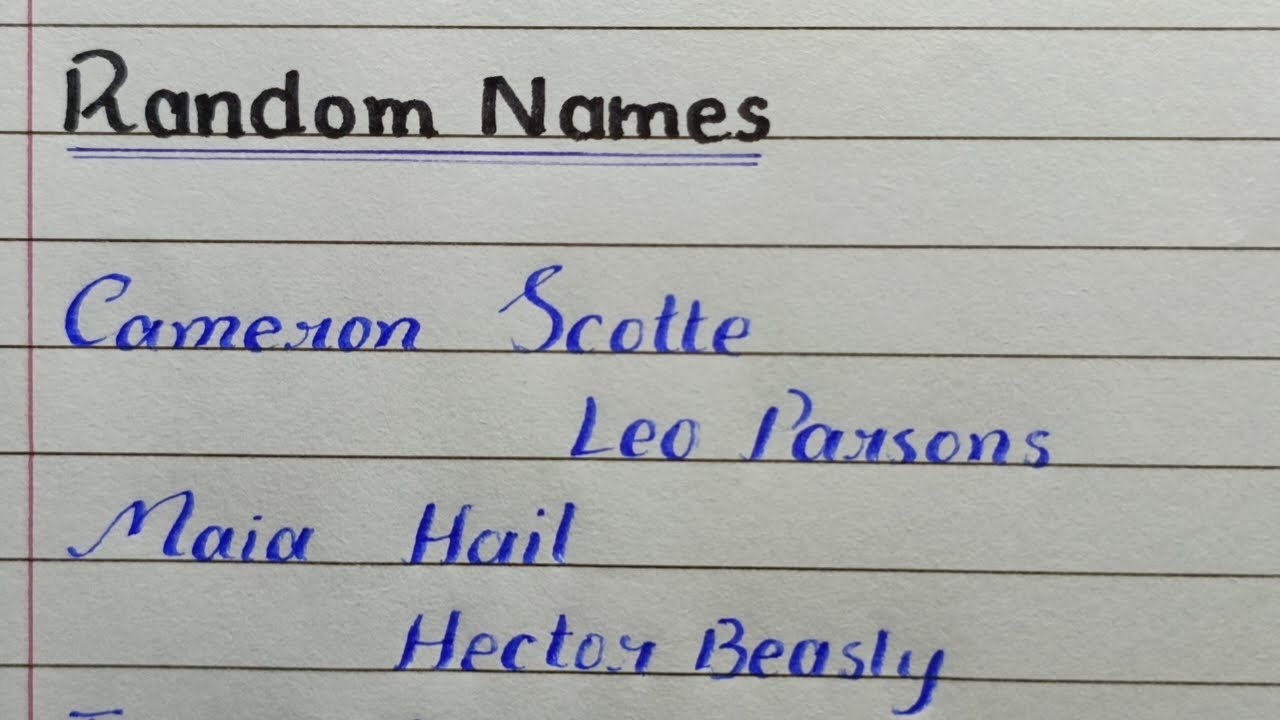 Random Names
Cameron Scotte
Leo Parsons
Maia Hail
Hector Beasly